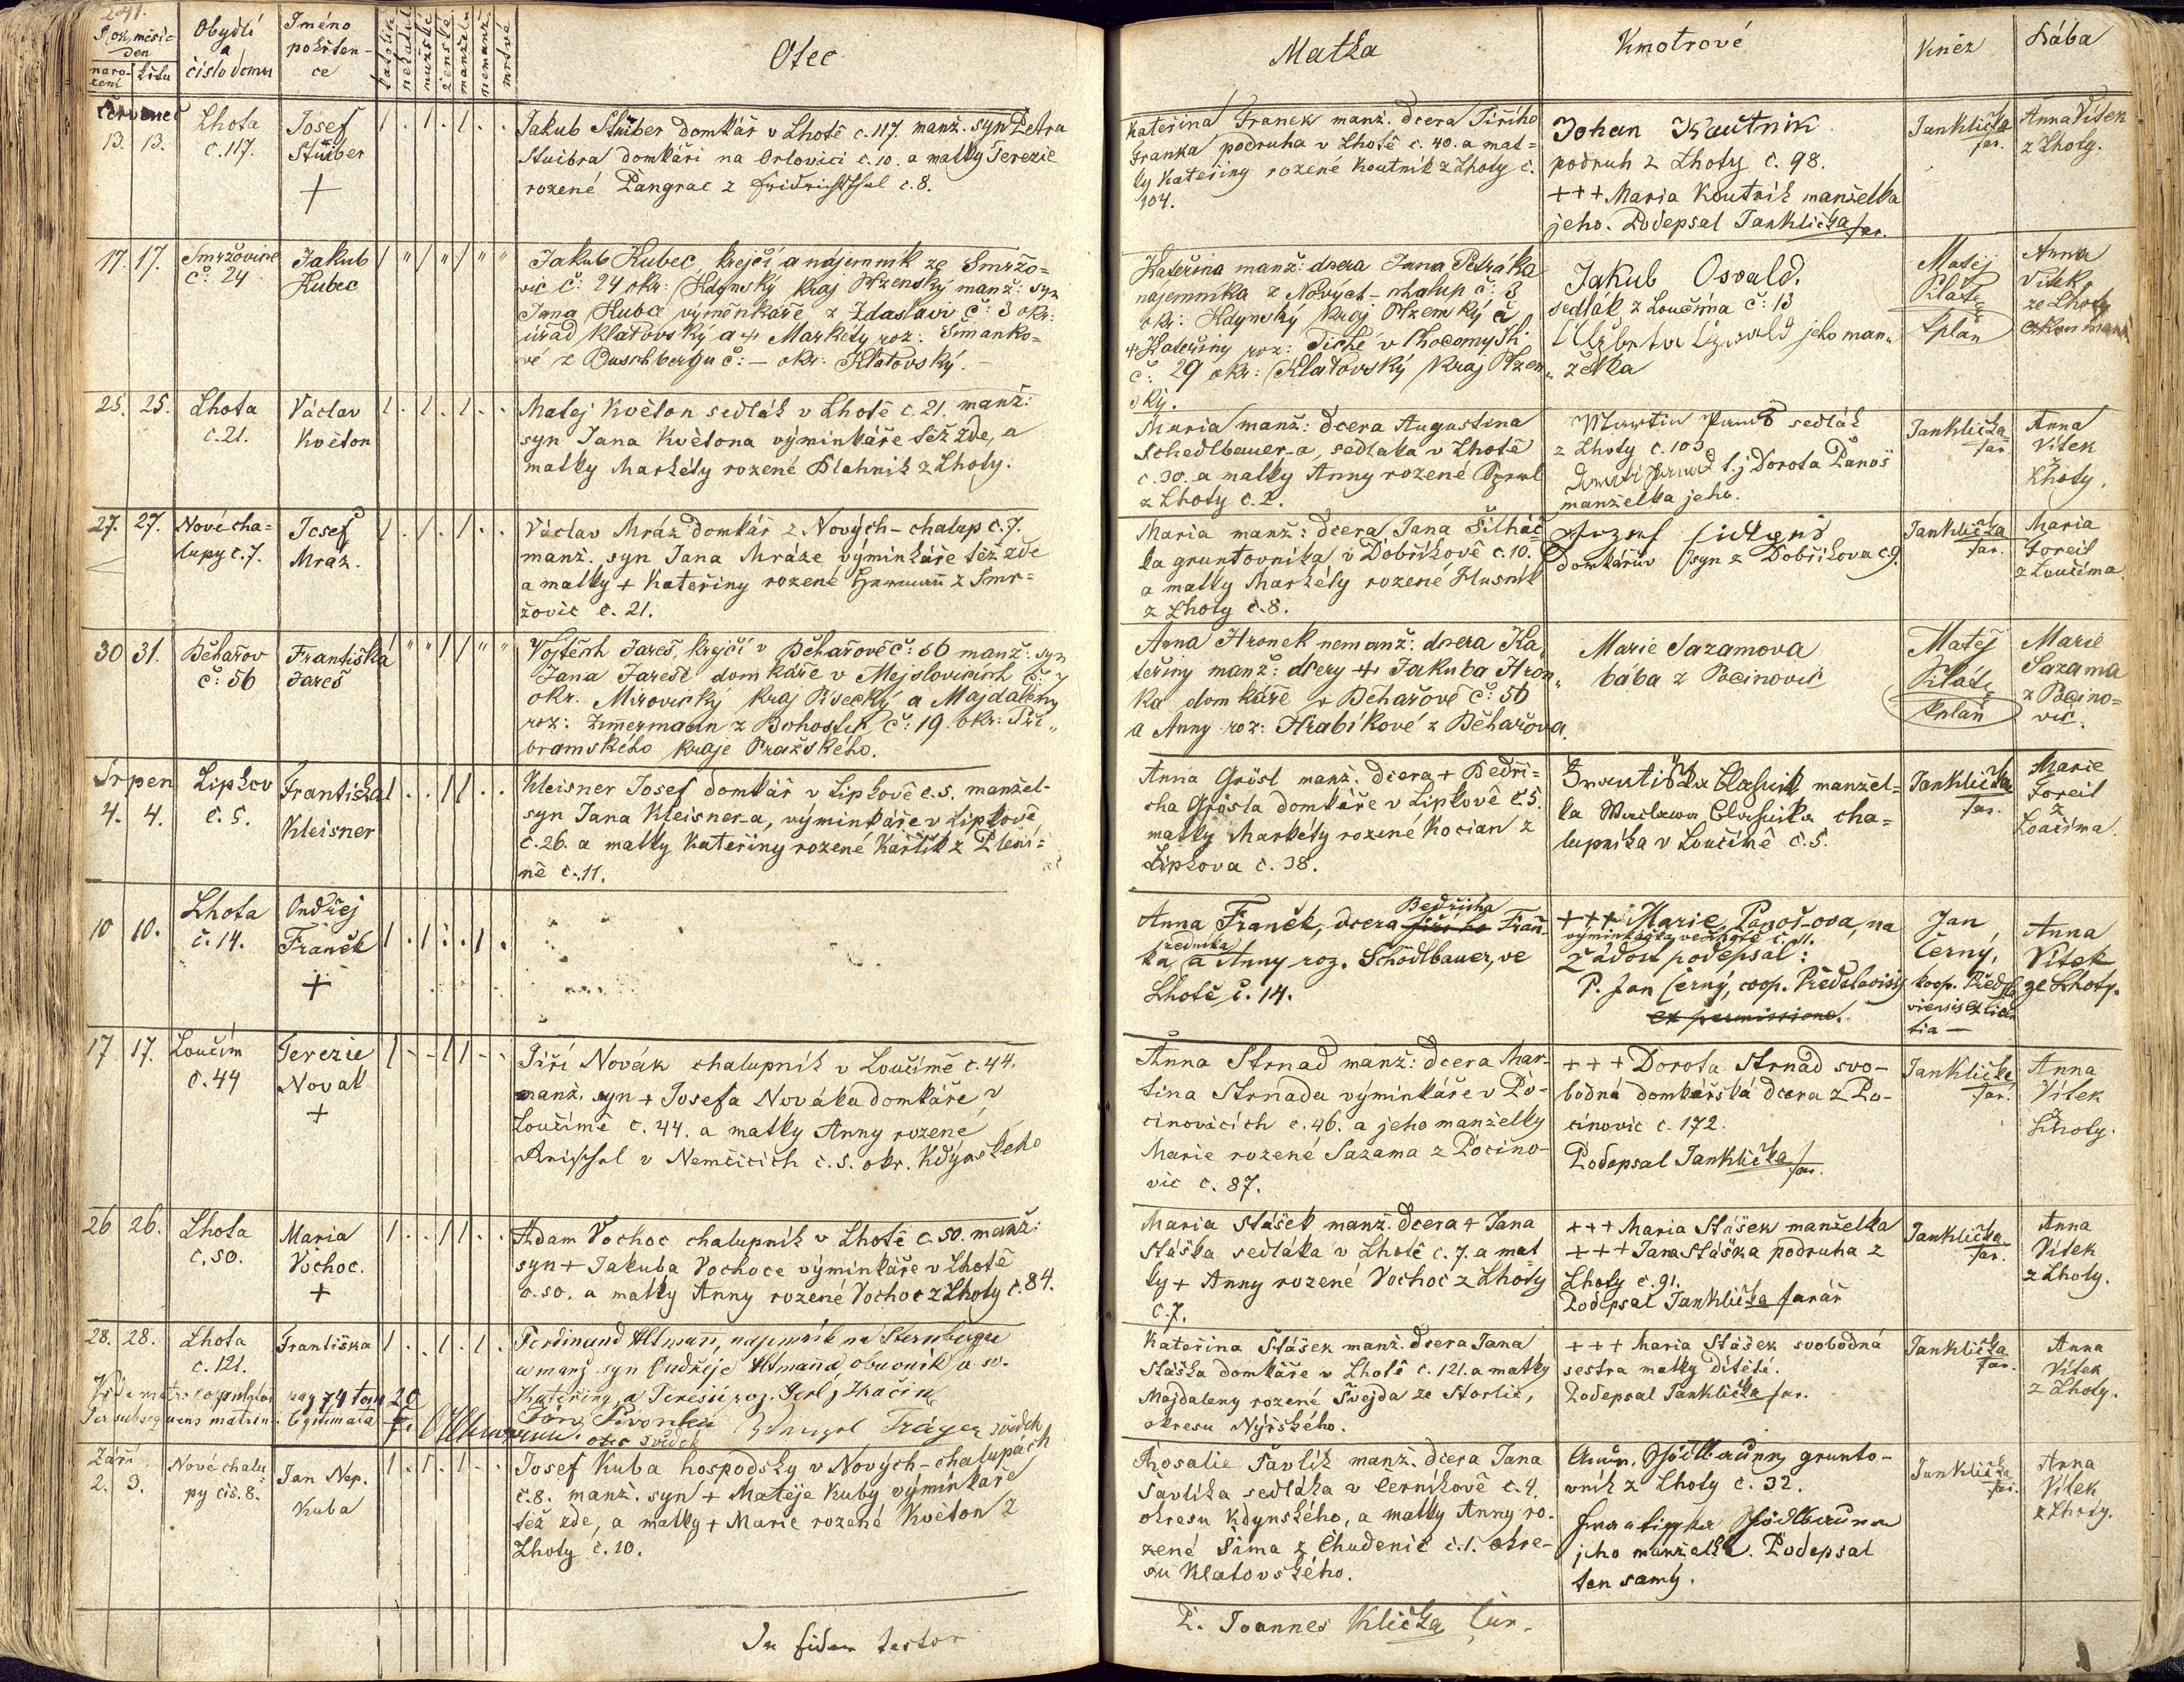 241.
Rok, měsíc
den
naro-
zení
křtu
Obydlí
a
číslo domu
Jméno
pokřten-
ce
katolík
nekatol
mužské
ženské
manžel.
nemanž.
mrtvé
Otec
Matka
Kmotrové
Kněz
Bába
Červenec
13. 13.
Lhota
č. 117.
Josef
Stuiber
+
Jakub Stuiber domkář v Lhotě č. 117. manž. syn Petra
Stuibra domkáři na Orlovici č. 10. a matky Terezie
rozené Pangrac z Fridrichsthal č. 8.
Kateřina Franek manž. dcera Jiřího
Franka podruha v Lhotě č. 40. a mat=
ky Kateřiny rozené Koutník z Lhoty č.
104.
Johan Kautnik
podruh z Lhoty č. 98.
+++ Maria Koutník manželka
jeho. Podepsal Jan Klička far.
Jan Klička
far.
Anna Vítek
z Lhoty.
17. 17.
Smržovice
č: 24
Jakub
Kubec
Jakub Kubec krejčí a nájemník ze Smržo=
vic č: 24 okr: Kdynský kraj Plzenský manž: syn
Jana Kubce výměnkáře z Zdaslavi č: 3 okr:
úřad Klatovský a + Markéty roz: Šmanko=
vé z Buschbergu č: – okr: Klatovský. –
Kateřina manž: dcera Jana Petráka
nájemníka z Nových-chalup č: 3
okr: Kdynský kraj Plzenský a
+ Kateřiny roz: Tiché v Chocomyšli
č: 29 okr: Klatovský kraj Plzen„
ský.
Jakub Osvald.
sedlák z Loučíma č: 13
Alžběta Oswald jeho man„
želka
Matěj
Pilát
kplan
Anna
Vítek,
ze Lhoty
25. 25.
Lhota
č. 21.
Václav
Květon
Matej Květon sedlák v Lhotě č. 21. manž:
syn Jana Květona výminkáře též zde, a
matky Markéty rozené Blahník z Lhoty.
Maria manž: dcera Augustina
Schedlbauer-a, sedlaka v Lhotě
č. 30. a matky Anny rozené
z Lhoty č. 2.
Martin Panoš sedlák
z Lhoty č. 103
t. j. Dorota Panoš
manželka jeho.
Jan Klička
far
Anna
Vítek
Lhoty.
27. 27.
Nové cha=
lupy č. 7.
Josef
Mráz.
Václav Mráz domkář z Nových-chalup č. 7.
manž. syn Jana Mráze výminkáře též zde
a matky + Kateřiny rozené Hermann z Smr=
žovic č. 21.
Maria manž: dcera Jana Šilháč=
ka gruntovníka v Dobříkově č. 10.
a matky Markéty rozené Husník
z Lhoty č. 8.
Jozef
domkářův syn z Dobříkova č. 9.
Jan Klička
far.
Maria
Foreil
z Loučíma.
30 31.
Běhařov
č: 56
Františka
Jareš
Vojtěch Jareš, krejčí v Běhařově č: 66 manž: syn
Jana Jareše domkáře v Mejslovicích č: 7
okr. Mirovický kraj Písecký a Majdaleny
roz: Zimermann z Bohostic č: 19. okr: Pří„
bramského kraje Pražského.
Anna Hronek nemanž: dcera Ka„
teřiny manž: dcery + Jakuba Hron„
ka domkáře v Běhařově č: 56
a Anny roz: Hrabíkové z Běhařova.
Marie Sazamova
bába z Pocinovic
Matěj
Pilát
kplan
Marie
Sazama
z Pocino=
vic.
Srpen
4. 4.
Lipkov
č. 5.
Františka
Kleisner
Kleisner Josef domkář v Lipkově č. 5. manžel-
syn Jana Kleisner-a, výminkáře v Lipkově
č. 26. a matky Kateřiny rozené Karlík z Pleni=
ně č. 11.
Anna Grösl manž. dcera + Bedři=
cha Grösla domkáře v Lipkově č. 5.
matky Markéty rozené Kocian z
Lipkova č. 38.
Františka Blahnik manžel=
ka Waclawa Blahnika cha=
lupníka v Loučímě č. 5.
Jan Klička
far.
Marie
Foreil
z
Loučíma.
10 10.
Lhota
č. 14.
Ondřej
Franěk
+
Anna Franěk, dcera Bedřicha Fraň-
ka, a Anny roz. Schödlbauer, ve
Lhotě č. 14.
+++ Marie Panoš-ova, na
výminkářka ve Lhotě č. 11.
žádost podepsal:
P. Jan Černý, coop. Předslavský
ex permissione.
Jan
Černý,
koop. Předsla
viensis ex licen
tia –
Anna
Vítek
ze Lhoty.
17 17.
Loučím
č. 44
Terezie
Novak
+
Jiří Novák chalupník v Loučímě č. 44.
manž. syn + Josefa Nováka domkáře v
Loučímě č. 44. a matky Anny rozené
v Nemčicích č. 5. okr. Kdýnského
Anna Strnad manž: dcera Mar-
tina Strnada výminkáře v Po-
cinovicích č. 46. a jeho manželky
Marie rozené Sazama z Pocino-
vic č. 87.
+++ Dorota Strnad svo-
bodná domkářská dcera z Po-
cinovic č. 172.
Podepsal Jan Klička far.
Jan Klička
far.
Anna
Vítek
Lhoty.
26 26.
Lhota
č. 50.
Maria
Vochoc.
+
Adam Vochoc chalupník v Lhotě č. 50. manž:
syn + Jakuba Vochoce výminkáře v Lhotě
č. 50. a matky Anny rozené Vochoc z Lhoty č. 84.
Maria Stášek manž. dcera + Jana
Stáška sedláka v Lhotě č. 7. a mat
ky + Anny rozené Vochoc z Lhoty
č. 7.
+++ Maria Stášek manželka
+++ Jana Stáška podruha z
Lhoty č. 91.
Podepsal Jan Klička farář
Jan Klička
far.
Anna
Vítek
z Lhoty.
28. 28.
Lhota
č. 121.
Františka
Ferdinand Altmann, najemník na Sternbergu
a manž. syn Ondřeje Altmanna obuvník a so-
Kateřiny, a Teresie roz. Gerl z Kačina
pag 74 tom 20
Per subsequens matrim. legitimata
Altmann. otec
Jan Pivonka
svědek
Träger svědek
Kateřina Stášek manž. dcera Jana
Stáška domkáře v Lhotě č. 121. a matky
Majdaleny rozené Švejda ze Storlic,
okresu Nýrského.
+++ Maria Stášek svobodná
sestra matky dítěte.
Podepsal Jan Klička far.
Jan Klička
far.
Anna
Vítek
z Lhoty.
Září
2. 3.
Nové chalu=
py čís. 8.
Jan Nep.
Kuba
Josef Kuba hospodsky v Nových-chalupách
č. 8. manž. syn + Matěje Kuby výminkáře
též zde, a matky + Marie rozené Květon z
Lhoty č. 10.
Rosalie Pavlík manž. dcera Jana
Pavlíka sedláka v Černíkově č. 4.
okresu Kdynského, a matky Anny ro-
zené Šima z Chudenic č. 1. okre-
su Klatovského.
grunto-
vník z Lhoty č. 32.
jeho manželka. Podepsal
ten samý.
Jan Klička
far.
Anna
Vítek
z Lhoty.
In fidem testor
P. Joannes Klička cur.